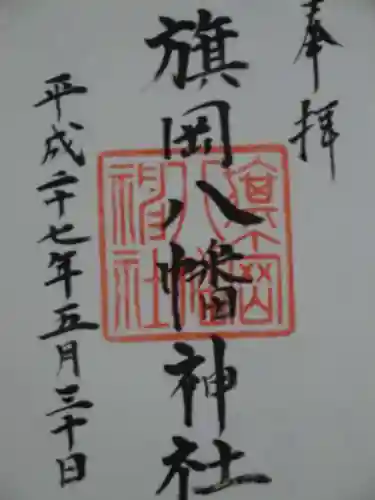 奉拝
旗岡八幡神社
平成二十七年五月三十日